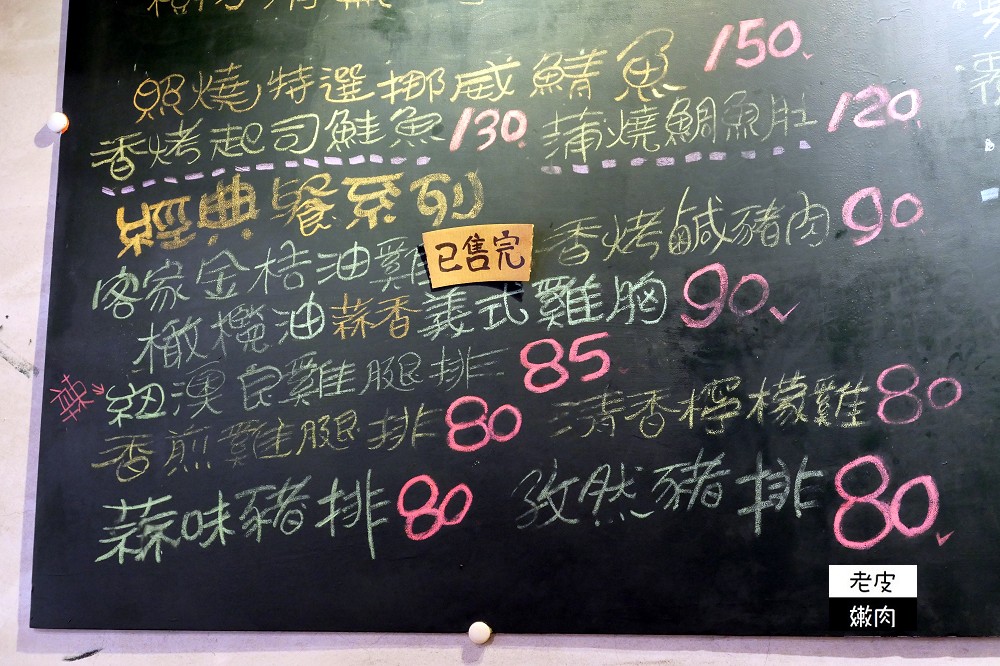 照燒特選挪威鯖魚 150
香烤起司鮭魚 130 蒲燒鯛魚肚 120
經典餐系列
客家金桔油雞 已售完 香烤鹹豬肉 90
橄欖油蒜香義式雞胸 90
辣 紐澳良雞腿排 85
香煎雞腿排 80 清香檸檬雞 80
蒜味豬排 80 孜然豬排 80
老皮
嫩肉